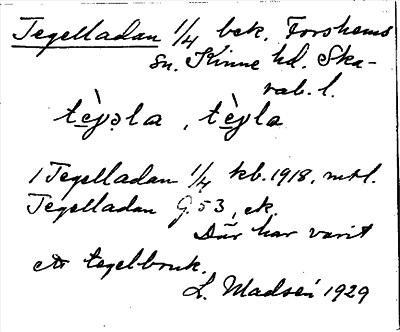 Tegelladan 1/4 bek. Forshems
sn. Kinne hd. Ska-
rab. l.
tèɡəla, tèɡla
1 Tegelladan 1/4 kb. 1918, mtl.
Tegelladan G. 53, ek.
Där har varit
ett tegelbruk.
L. Madsén 1929